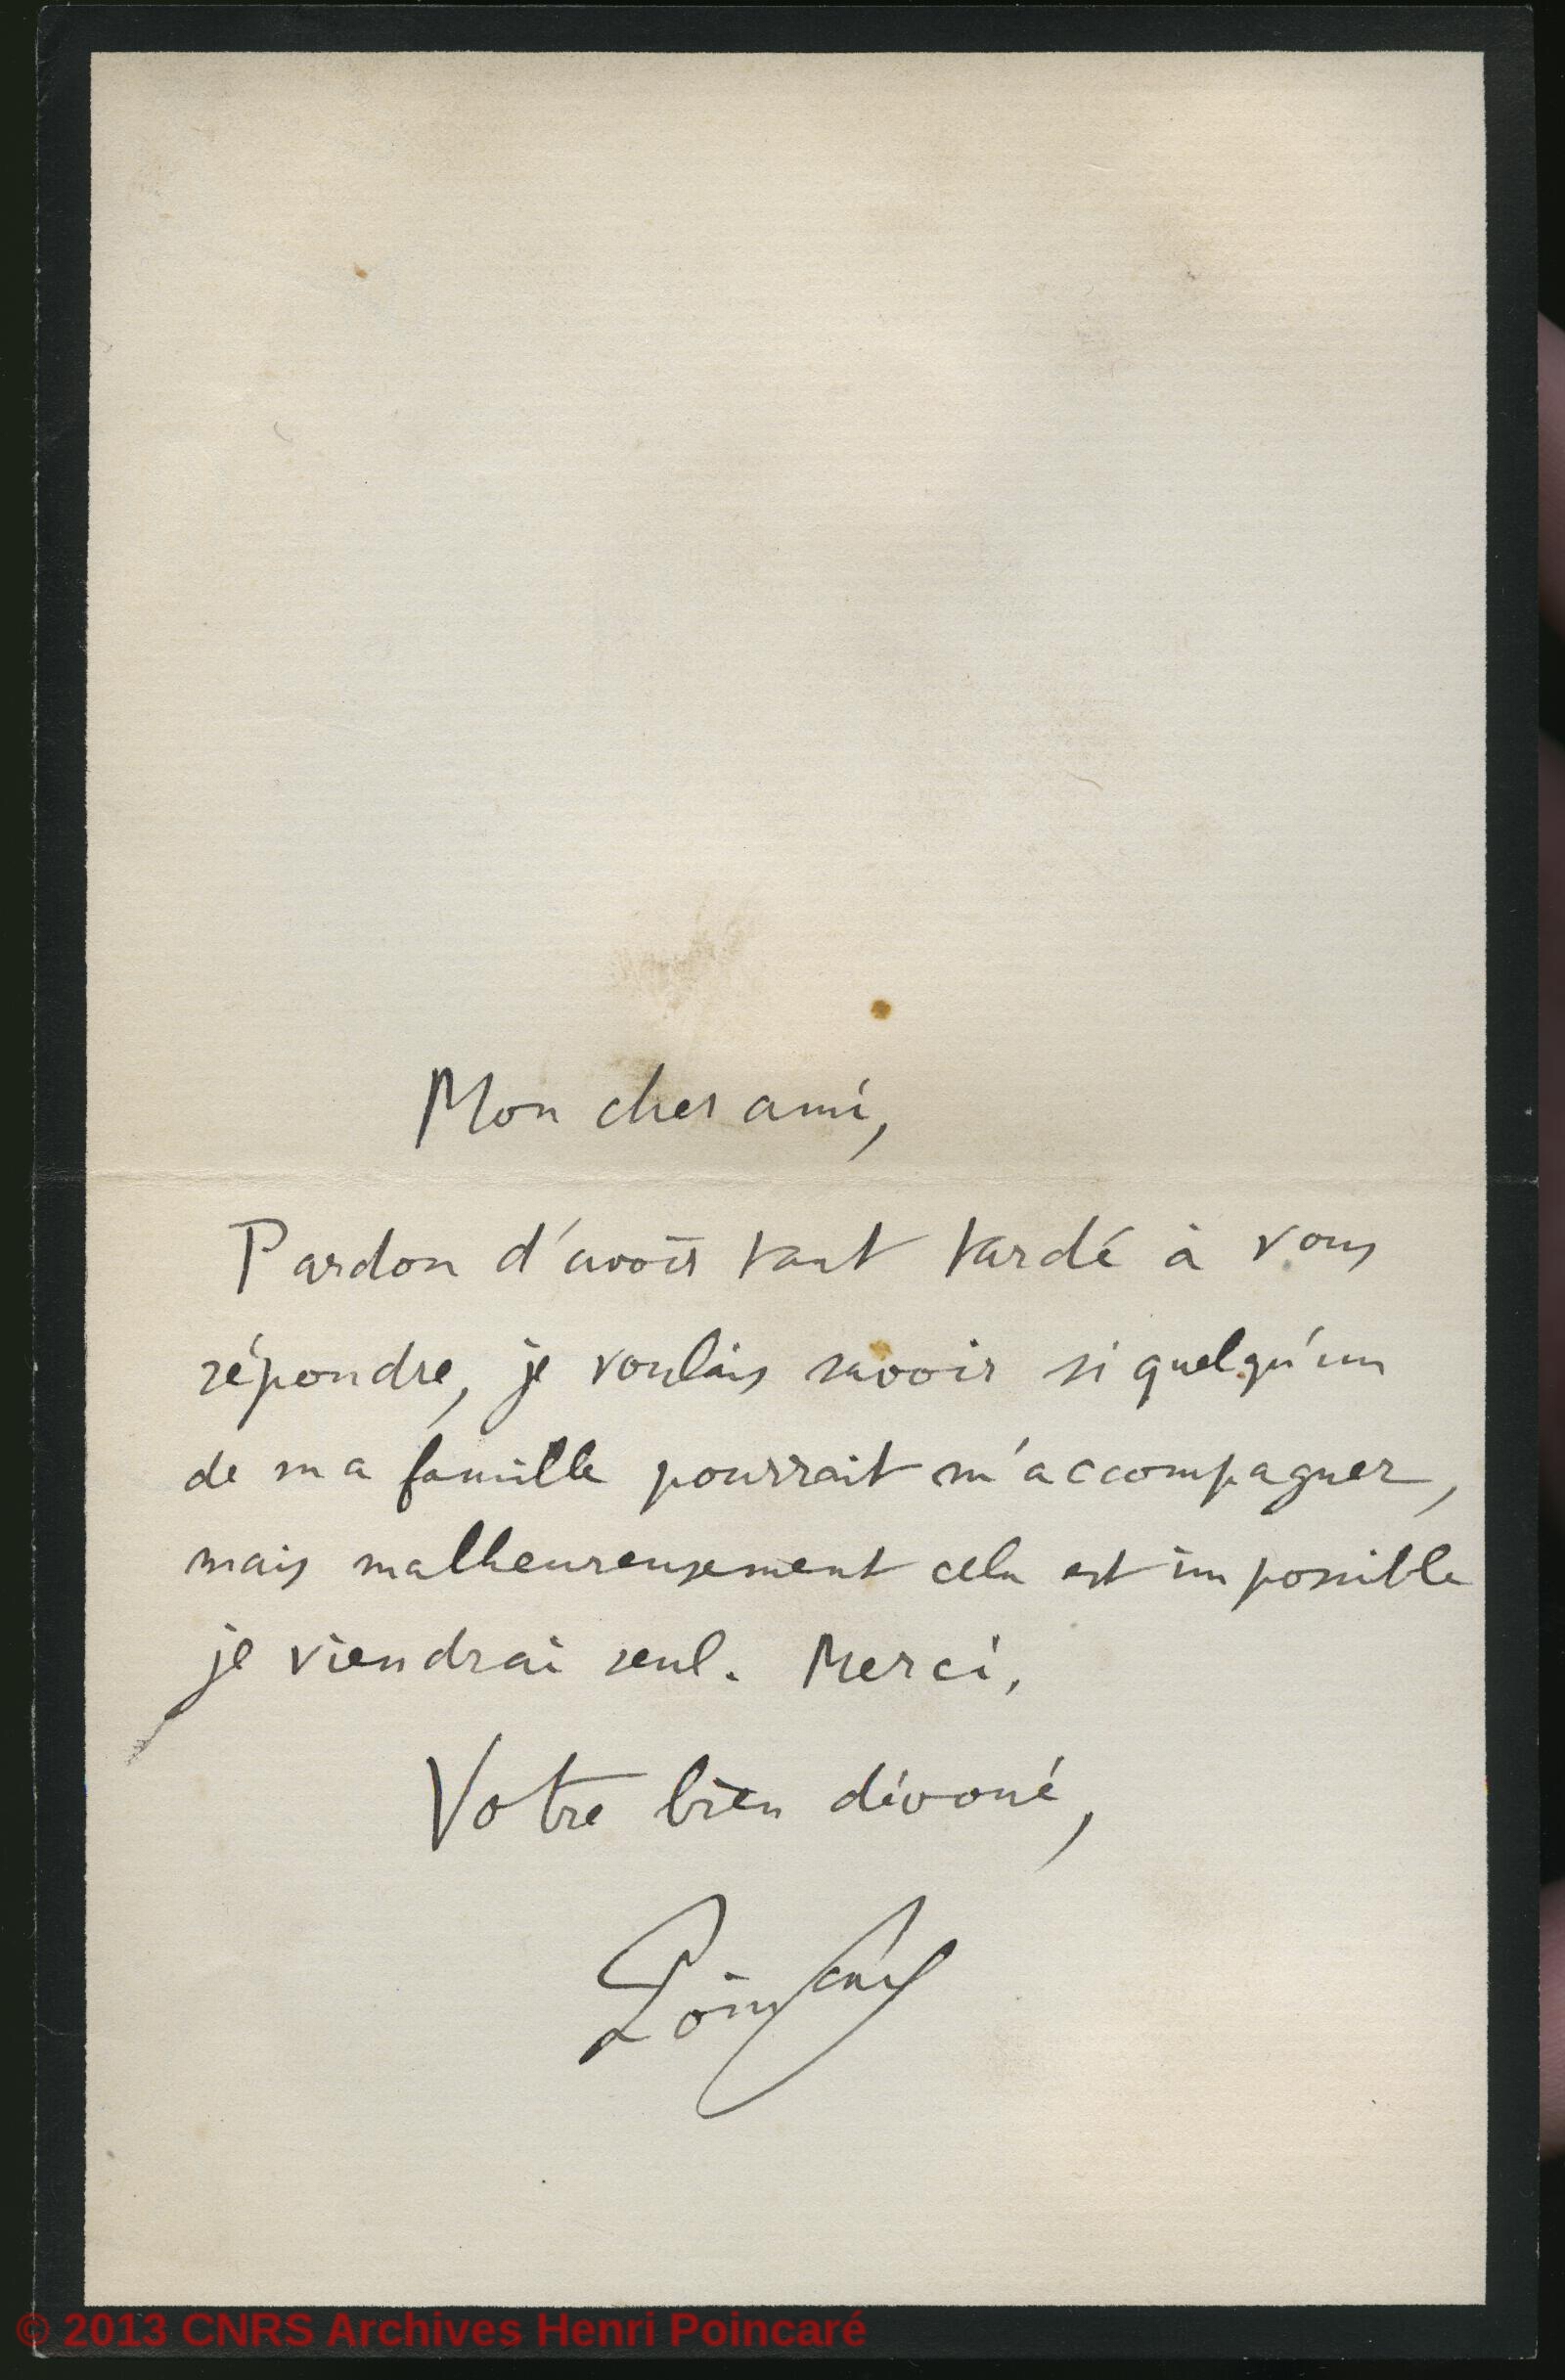 Mon cher ami,
Pardon d'avoir tant tardé à vous
répondre, je voulais savoir si quelqu'un
de ma famille pourrait m'accompagner,
mais malheureusement cela est impossible
je viendrai seul. Merci,
Votre bien dévoué,
Poincaré
© 2013 CNRS Archives Henri Poincaré